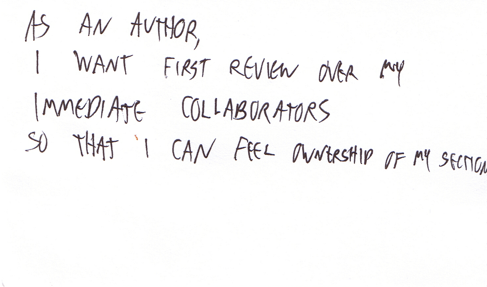 AS AN AUTHOR,
I WANT FIRST REVIEW OVER MY
IMMEDIATE COLLABORATORS
SO THAT I CAN FEEL OWNERSHIP OF MY SECTION